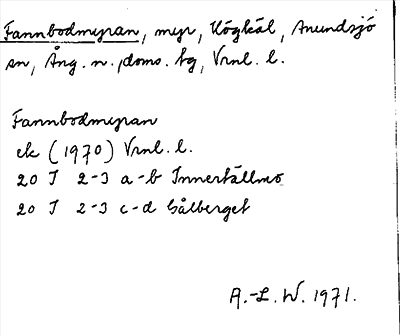 Fannbodmyran, myr, Högkäl, Anundsjö
sn, Ång. n. doms. tg, Vrnl. l.
Fannbodmyran
ek (1970) Vrnl. l.
20 J 2-3 a-b Innertällmo
20 J 2-3 c-d Sålberget
A.-L. W. 1971.